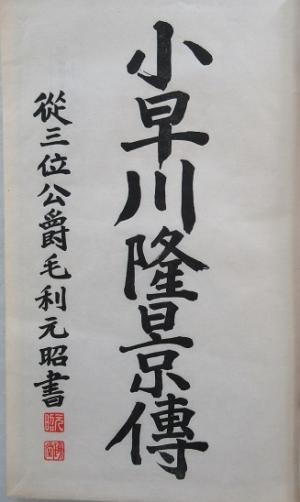 小早川隆景傳
從三位公爵毛利元昭書